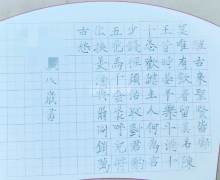 古來聖賢皆寂
寞唯有飲者留其名陳
王昔時宴平樂斗酒十
千恣歡謔主人何為言
少錢徑須沽取對君酌
五花馬千金裘呼兒將
出換美酒與爾同銷萬
古愁
八歲書